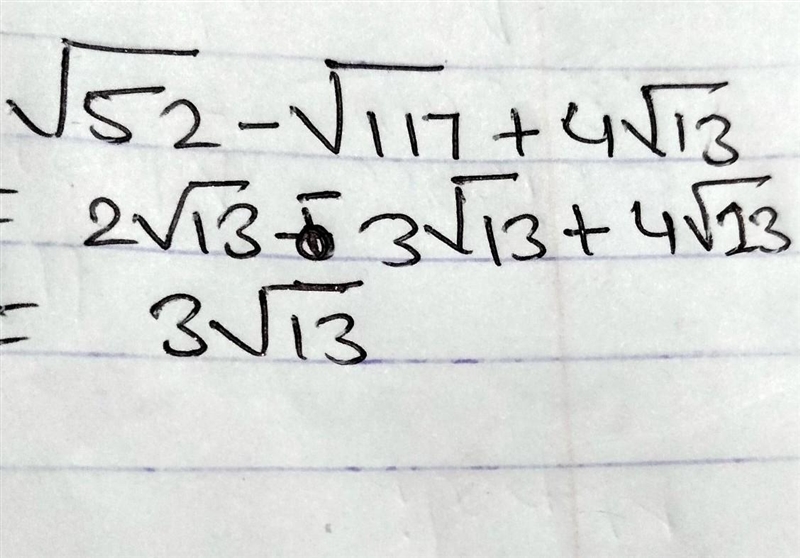 √52 - √117 + 4√13
= 2√13 - 3√13 + 4√13
= 3√13